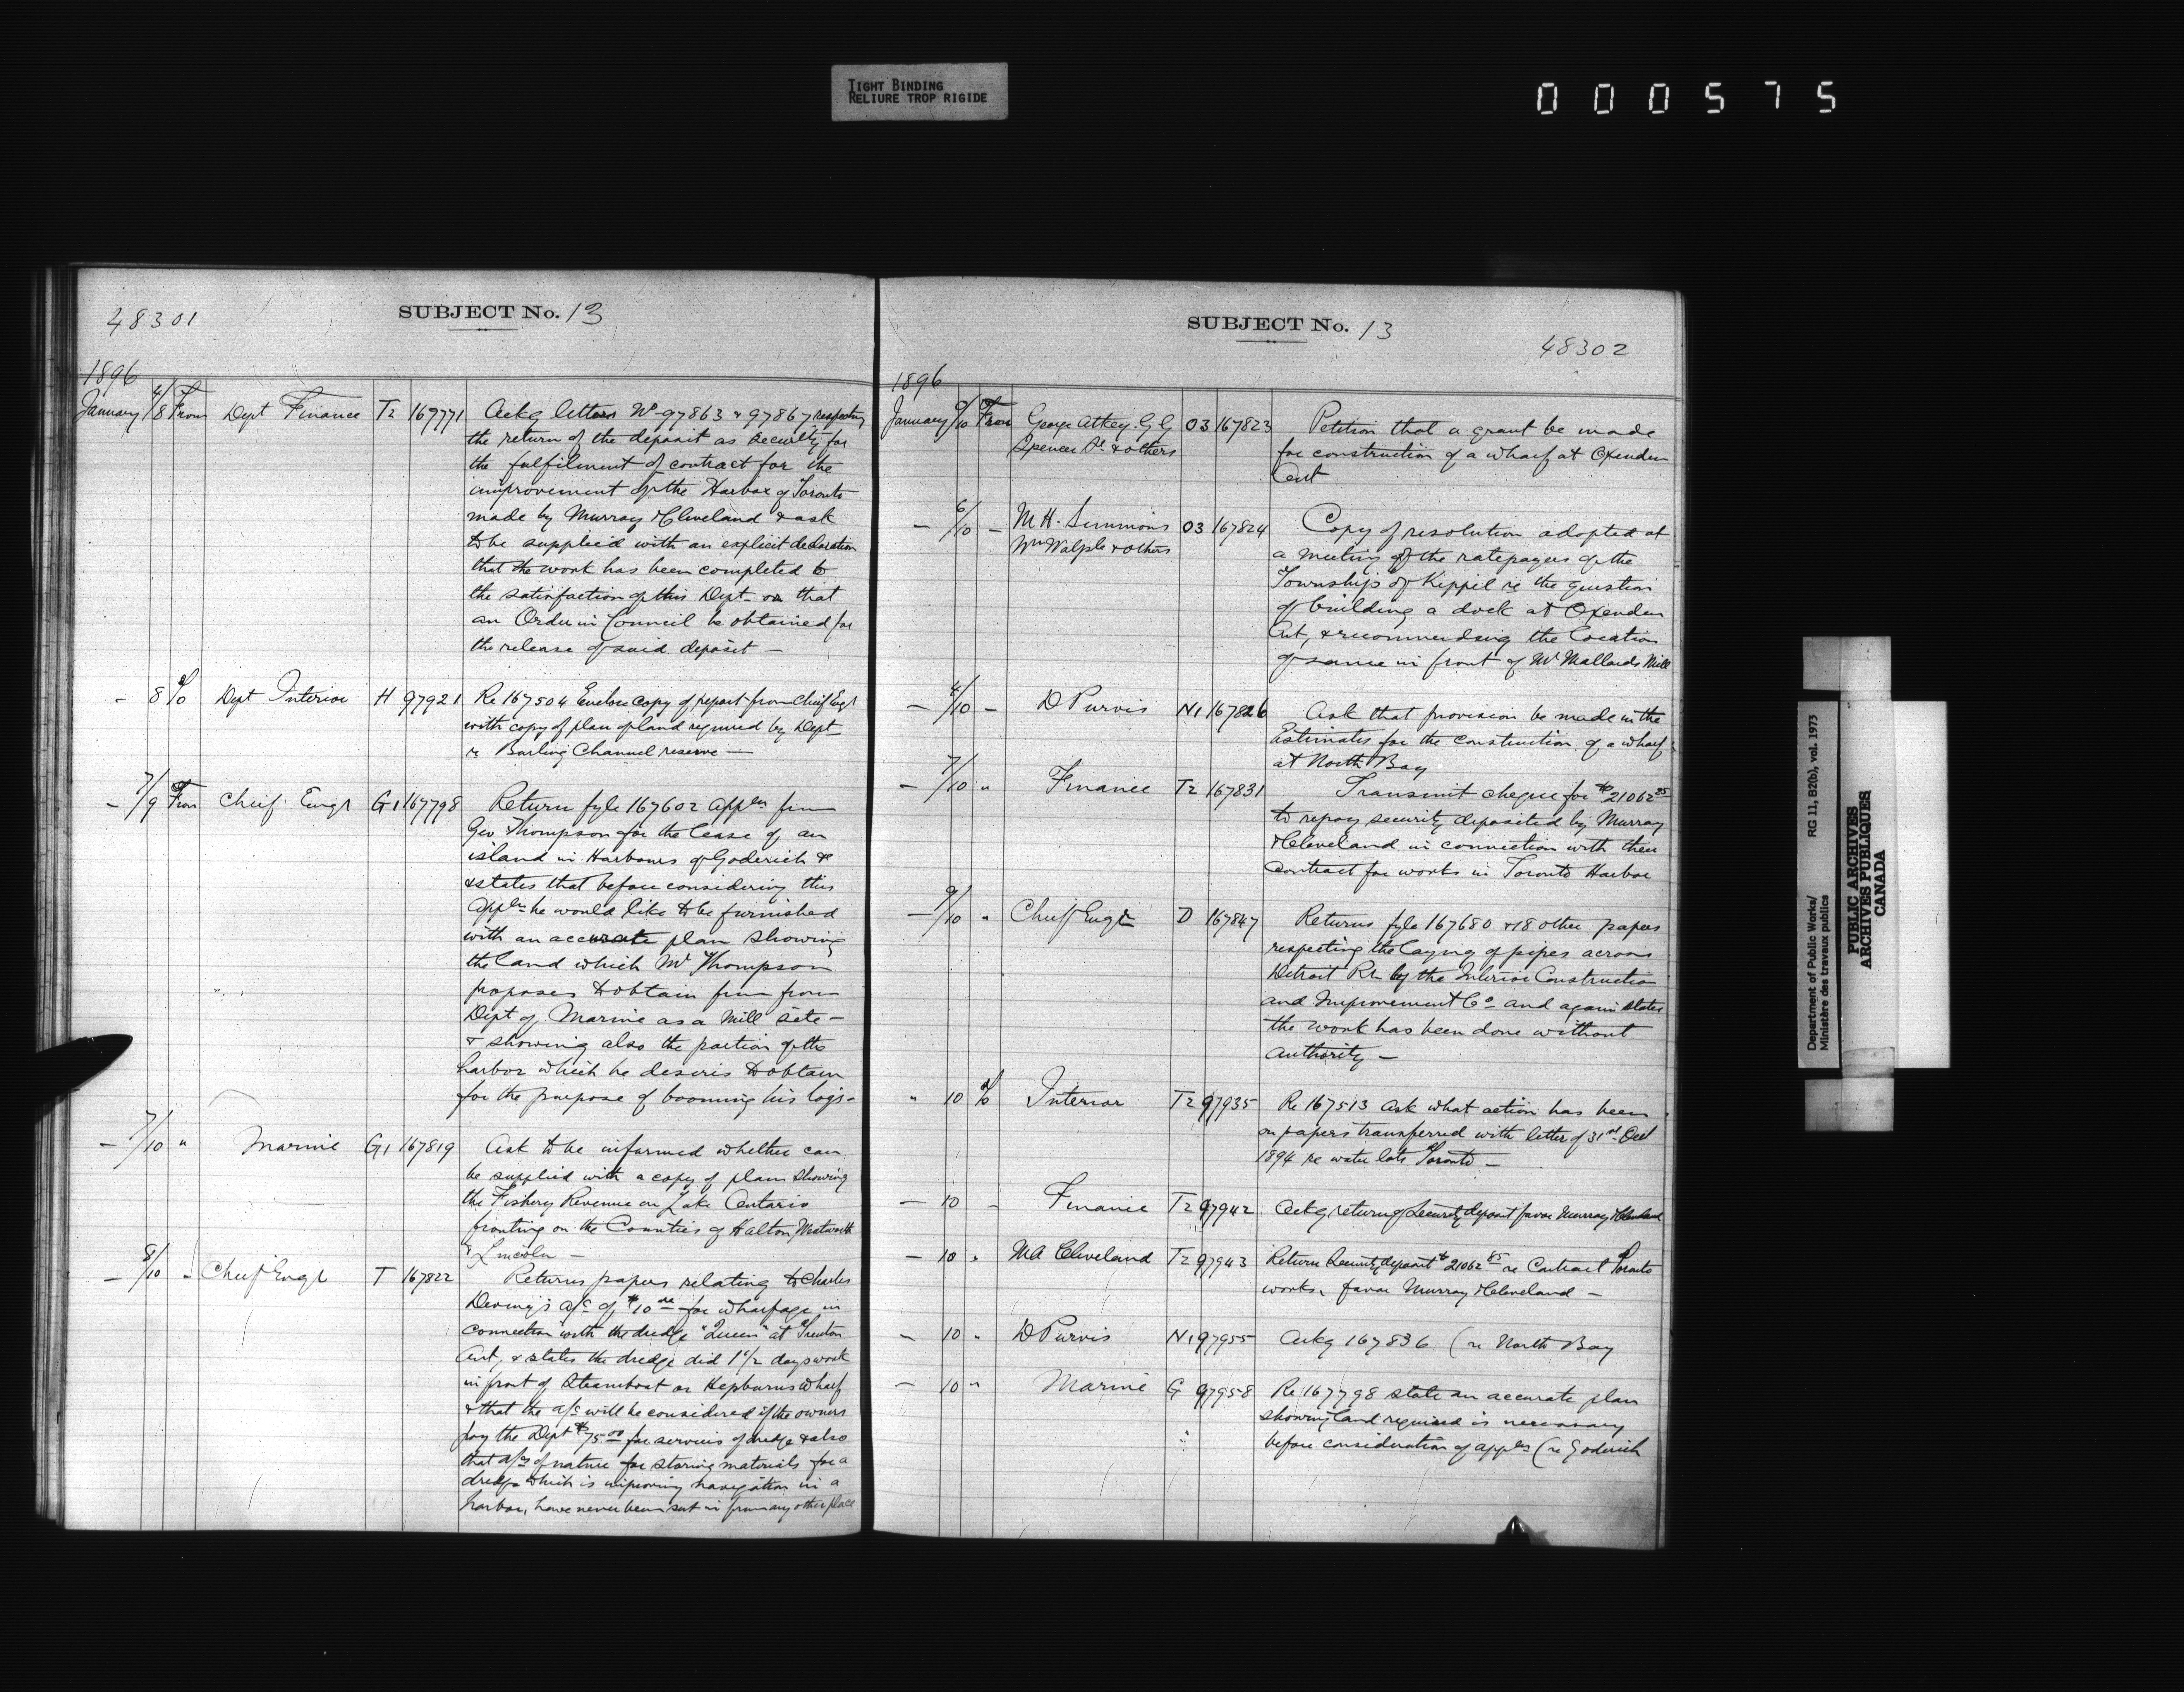 TIGHT BINDING
RELIURE TROP RIGIDE
000575
48301
SUBJECT No. 13
1896
January 4/8 From Dept Finance T2 167771 Ackg letters No 97863 & 97867 respecting
the return of the deposit as security for
the fulfilment of contract for the
improvement of the Harbor of Toronto
made by Murray & Cleveland & ask
to be supplied with an explicit declaration
that the work has been completed to
the satisfaction of this Dept or that
an Order in Council be obtained for
the release of said deposit —
- 8 To Dept Interior H 97921 Re 167504 Enclose copy of report from Chief Engr
with copy of plan of land required by Dept
re Burling Channel reserve —
- 7/9 From Chief Engr G1 167798 Return fyle 167602 appln from
Geo Thompson for the lease of an
island in Harbours of Goderich &
& states that before considering this
Appln he would like to be furnished
with an accurate plan showing
the land which Mr Thompson
proposes to obtain from
Dept of Marine as a Mill site —
& showing also the portion of the
harbor which he desires to obtain
for the purpose of booming his logs -
- 7/10 " Marine G1 167819 Ask to be informed whether can
be supplied with a copy of plan showing
the Fishery Revenue on Lake Ontario
fronting on the Counties of Halton, Wentworth
& Lincoln —
- 8/10 " Chief Engr T 167822 Returns papers relating to Charles
a/c of $10 for wharfage in
connection with the dredge "Queen" at Trenton
Ont, & states the dredge did 1 1/2 days work
in front of Steamboat or Hepburns wharf
& that the a/c will be considered if the owners
pay the Dept $75.00 for services of dredge & also
that a/cs of nature for storing materials for a
dredge which is improving navigation in a
harbor, have never been sent in from any other place
SUBJECT No. 13
48302
1896
January 9/10 From George Atkey. G G O3 167823 Petition that a grant be made
Spencer & others for construction of a wharf at Oxenden
Ont
- 6/10 - M H. Simmons O3 167824 Copy of resolution adopted at
Wm Walpole & others a meeting of the ratepayers of the
Township of Keppil re the question
of building a dock at Oxenden
Ont, & recommending the location
of same in front of Mr Mallards Mill
- 4/10 - D Purvis N1 167826 Ask that provision be made in the
Estimates for the construction of a wharf
at North Bay
- 7/10 " Finance T2 167831 Transmit cheque for $21062 85
to repay security deposited by Murray
& Cleveland in connection with their
contract for works in Toronto Harbor
- 9/10 " Chief Engr D 167847 Returns fyle 167680 & 18 other papers
respecting the laying of pipes across
Detroit Rr by the Interior Construction
and Improvement Co and again states
the work has been done without
authority —
" 10 To Interior T2 97935 Re 167513 Ask what action has been
on papers transferred with letter of 31st Oct
1894 re water lots Toronto —
- 10 - Finance T2 97942 Ackg return of Security deposit favor Murray & Cleveland
- 10 " MA Cleveland T2 97943 Return Security deposit $21062 85 re Contract Toronto
works, favor Murray & Cleveland —
- 10 " D Purvis N1 97955 Ackg 167836 (re North Bay
- 10 " Marine G 97958 Re 167798 state an accurate plan
showing land required is necessary
before consideration of appln (re Goderich
Department of Public Works/ RG 11, B2(b), vol. 1973
Ministère des travaux publics
PUBLIC ARCHIVES
ARCHIVES PUBLIQUES
CANADA